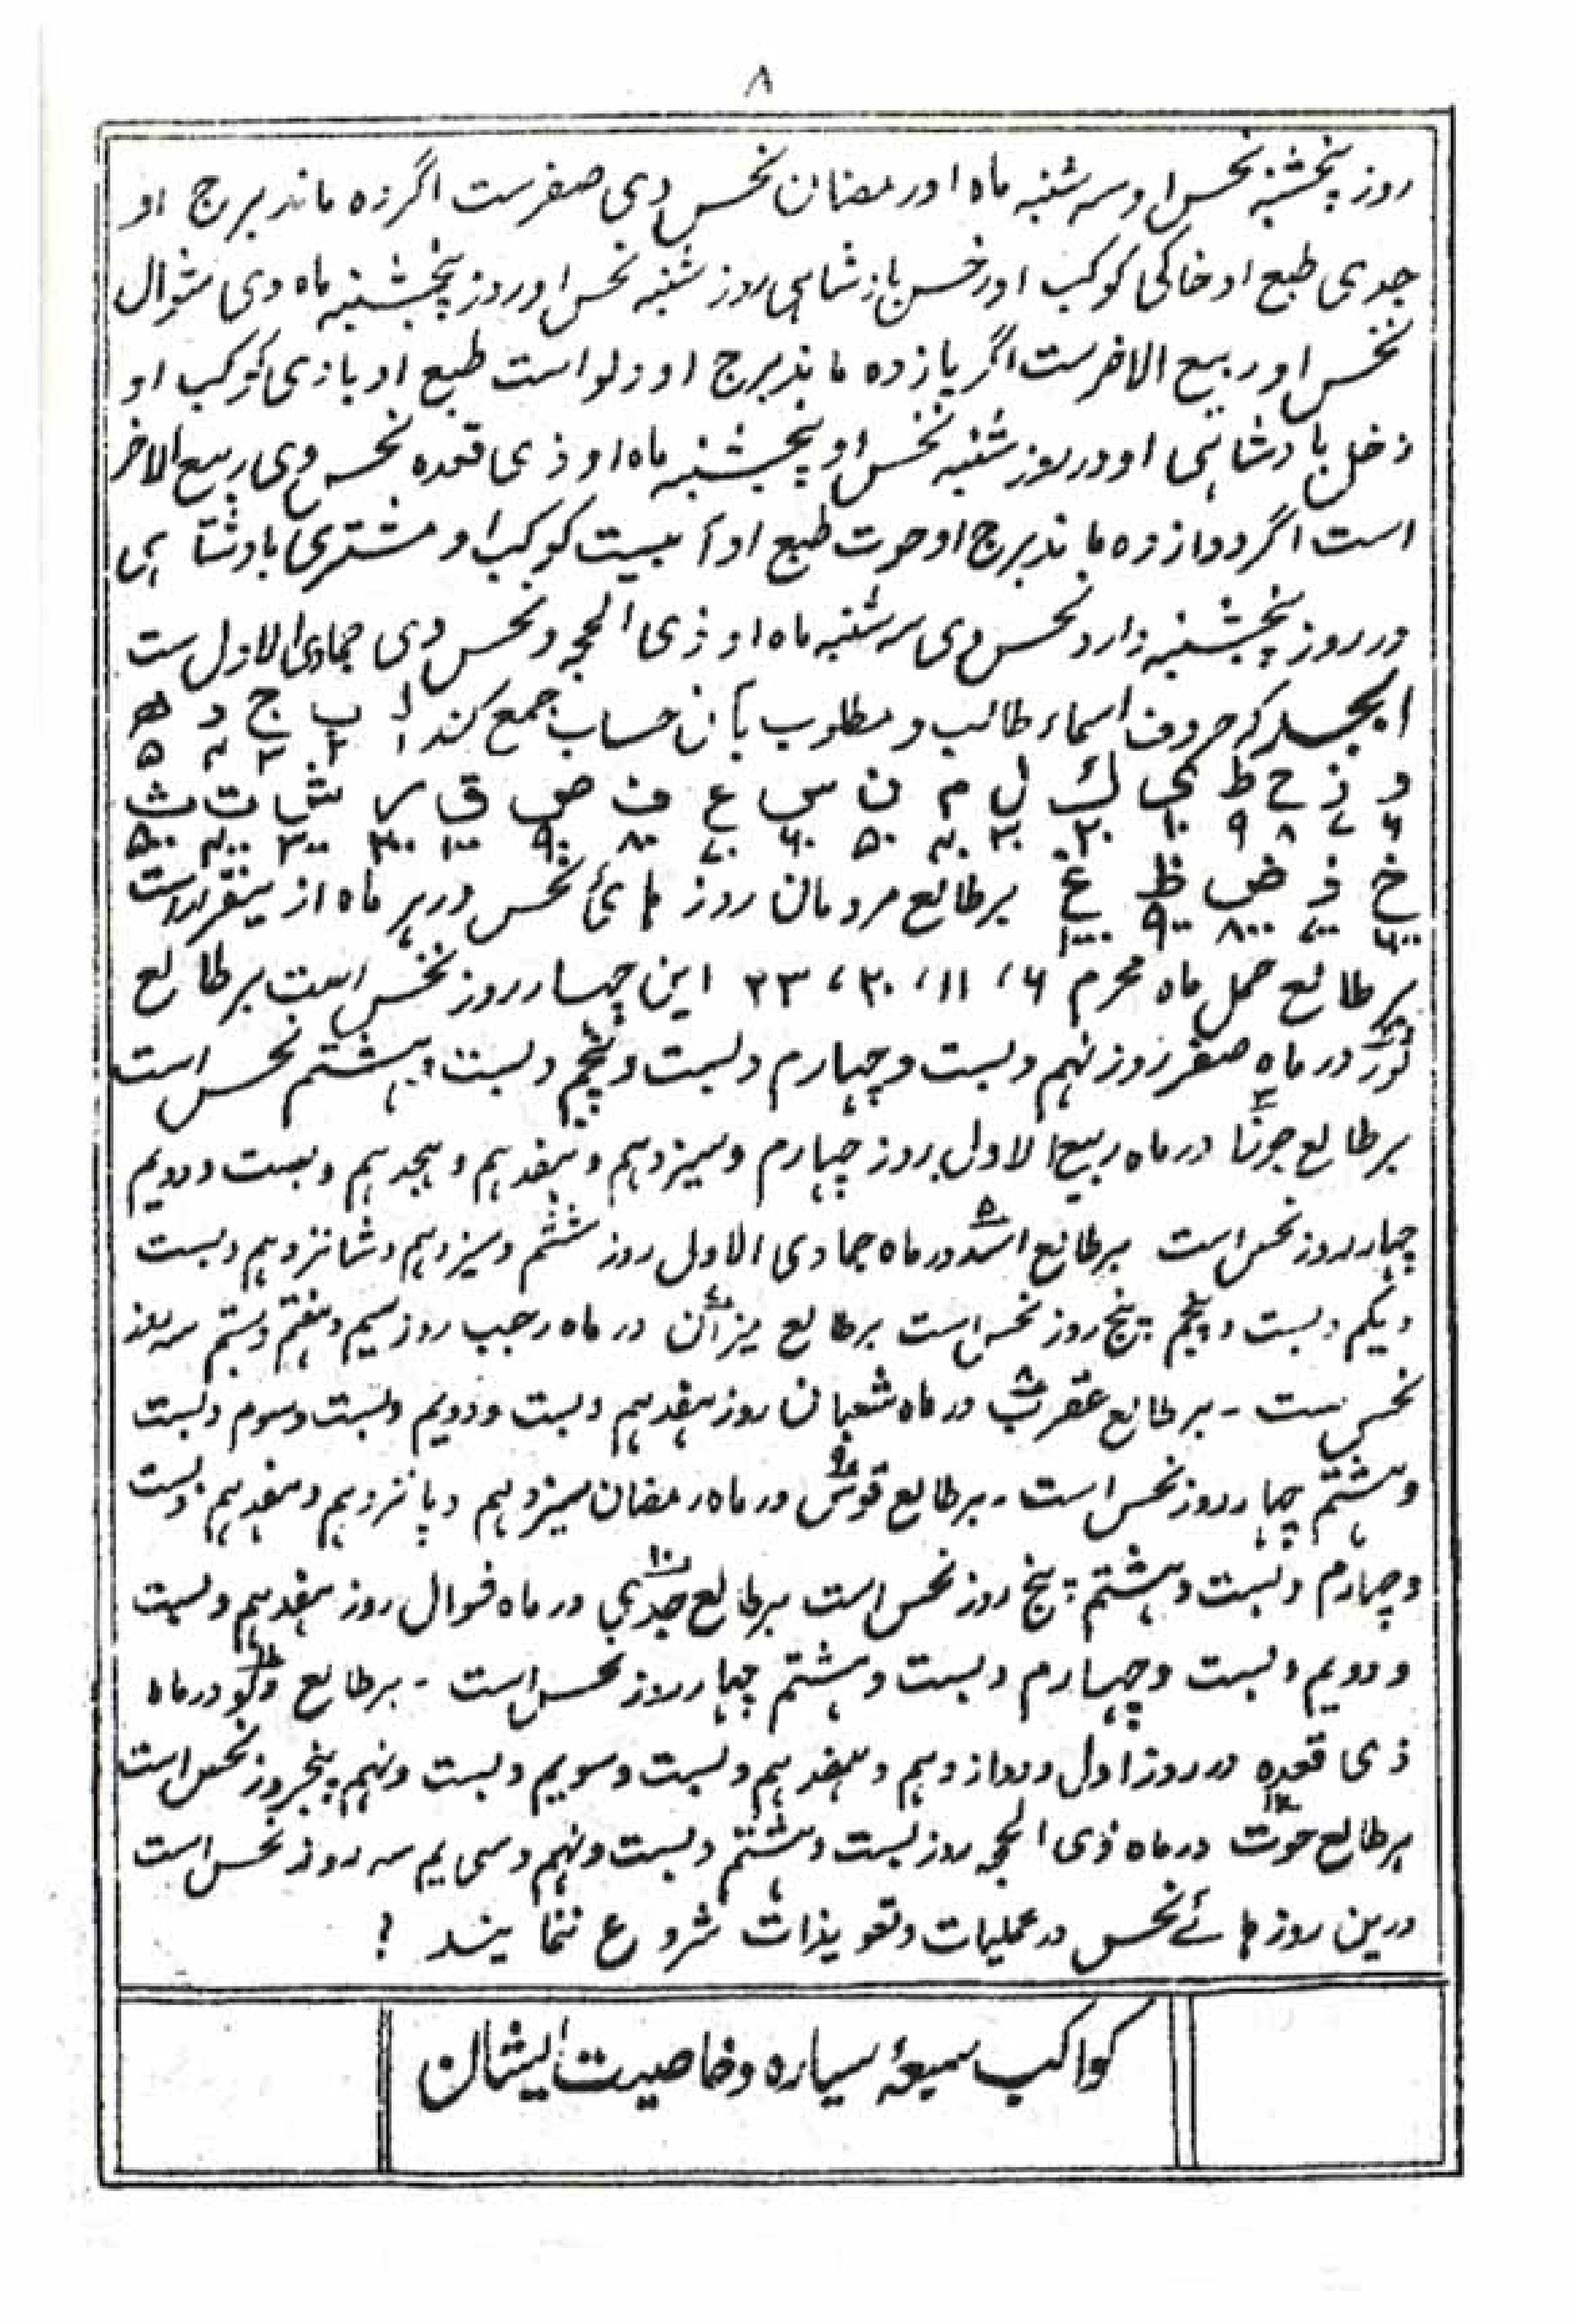 ۸
روز پنجشنبه نحس او سه شنبه ماه او رمضان نحس وی صفرست اگر ده ماند برج او
جدی طبع او خاکی کوکب او زحس بازشاهی روز شنبه نحس او روز پنجشنبه ماه وی شوال
نخس او ربیع الاخرست اگر یازده ماند برج او دلو است طبع او بادی کوکب او
زخل بادشاهی او در روز شنبه نخس او پنجشنبه ماه او ذی قعده نحس وی ربیع الاخر
است اگر دوازده ماند برج او حوت طبع او آبیست کوکب او مشتری بادشاهی
در روز پنجشنبه دارد نحس وی سه شنبه ماه او ذی الحجه و نحس وی جمادی الاول ست
ابجد که حروف اسماء طالب و مطلوب بآن حساب جمع کند ا ب ج د ه
۱ ۲ ۳ ۴ ۵
و ز ح ط ی ک ل م ن س ع ف ص ق ر ش ت ث
۶ ۷ ۸ ۹ ۱۰ ۲۰ ۳۰ ۴۰ ۵۰ ۶۰ ۷۰ ۸۰ ۹۰ ۱۰۰ ۲۰۰ ۳۰۰ ۴۰۰ ۵۰۰
خ ذ ض ظ غ برطالع مردمان روز هائ نحس در هر ماه از ینقرارست
۶۰۰ ۷۰۰ ۸۰۰ ۹۰۰ ۱۰۰۰
برطالع حمل ماه محرم ۶، ۱۱، ۲۰، ۲۳ این چهار روز نخس است برطالع
ثور در ماه صفر روز نهم و بست و چهارم و بست و پنجم و بست و هشتم نحس است
برطالع جوزا در ماه ربیع الاول روز چهارم و سیزدهم و هفدهم و هجدهم و بست و دویم
چهار روز نحس است برطالع اسد در ماه جمادی الاول روز ششم و سیزدهم و شانزدهم و بست
و یکم و بست و پنجم پنج روز نحس است برطالع میزان در ماه رجب روز سیم و هفتم و بستم سه روز
نحس ست - برطالع عقرب در ماه شعبان روز هفدهم و بست و دویم و بست و سوم و بست
و هشتم چهار روز نحس است - برطالع قوس در ماه رمضان سیزدهم و پانزدهم و هفدهم و بست
و چهارم و بست و هشتم پنج روز نحس است برطالع جدی در ماه شوال روز هفدهم و بست
و دویم و بست و چهارم و بست و هشتم چهار روز نحس است - برطالع دلو در ماه
ذی قعده در روز اول و دوازدهم و هفدهم و بست و سویم و بست و نهم پنجروز نحس است
برطالع حوت در ماه ذی الحجه روز بست و هشتم و بست و نهم و سی یم سه روز نحس است
درین روز هائے نحس در عملیات و تعویذات شروع ننمایند ؟
کواکب سبعۂ سیاره و خاصیت ایشان